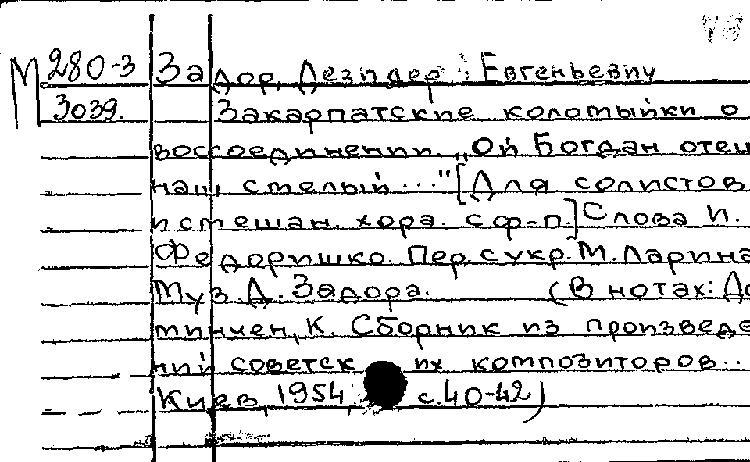 М 280-3 Задор, Дезидер Евгеньевич
3039. Закарпатские коломыйки о
воссоединении. „Ой Богдан отец
наш смелый..." [Для солистов
и смешан. хора. с ф-п.] Слова И.
Федоришко. Пер. с укр. М. Ларина
Муз. Д. Задора. (В нотах: До
минчен, К. Сборник из произведе
ний советск их композиторов...
Киев, 1954, с. 40-42)